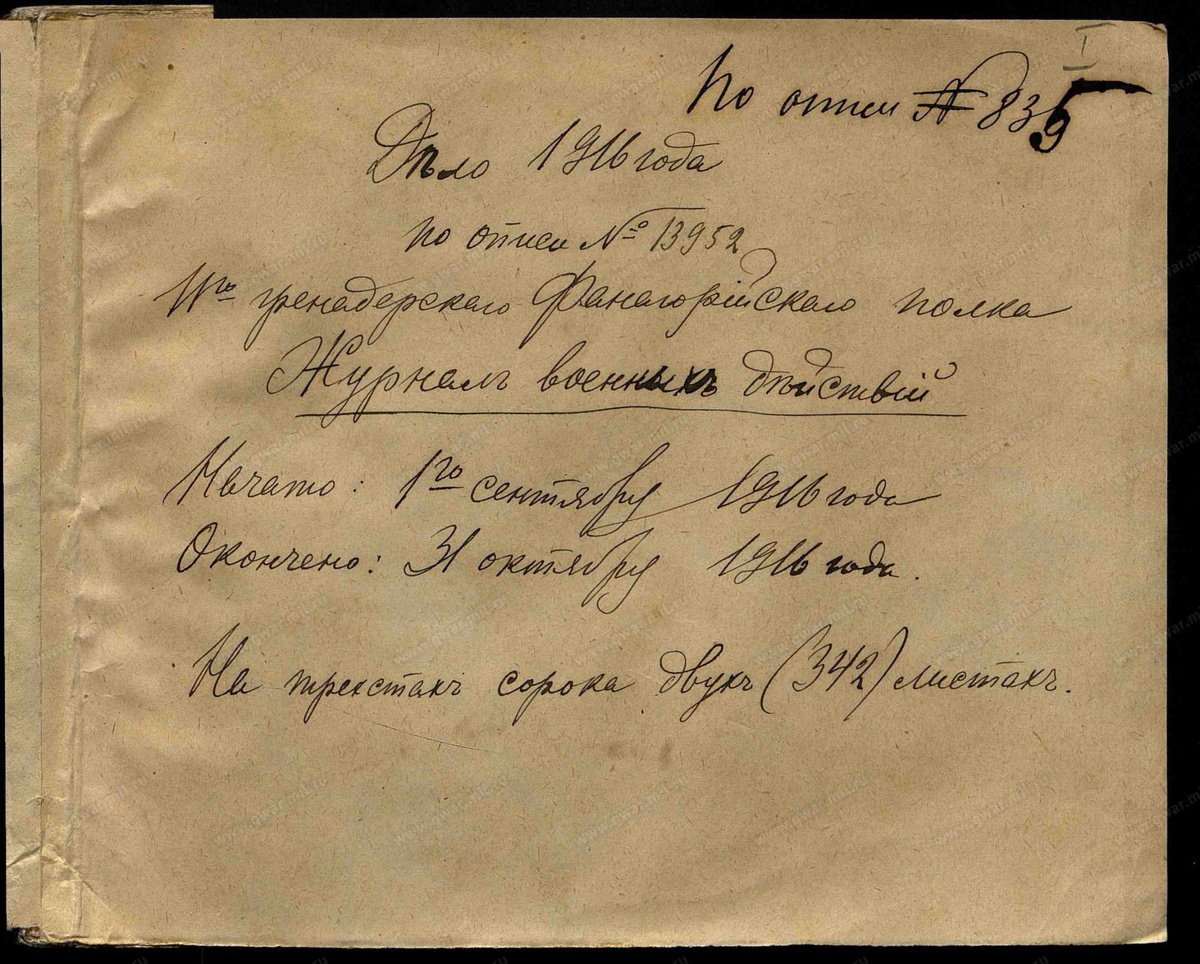 I
По описи № 835
Дѣло 1916 года
по описи № 13952
11го гренадерскаго Фанагорійскаго полка
Журналъ военныхъ дѣйствій
Начато: 1го сентября 1916 года
Окончено: 31 октября 1916 года.
На трехстахъ сорока двухъ (342) листахъ.